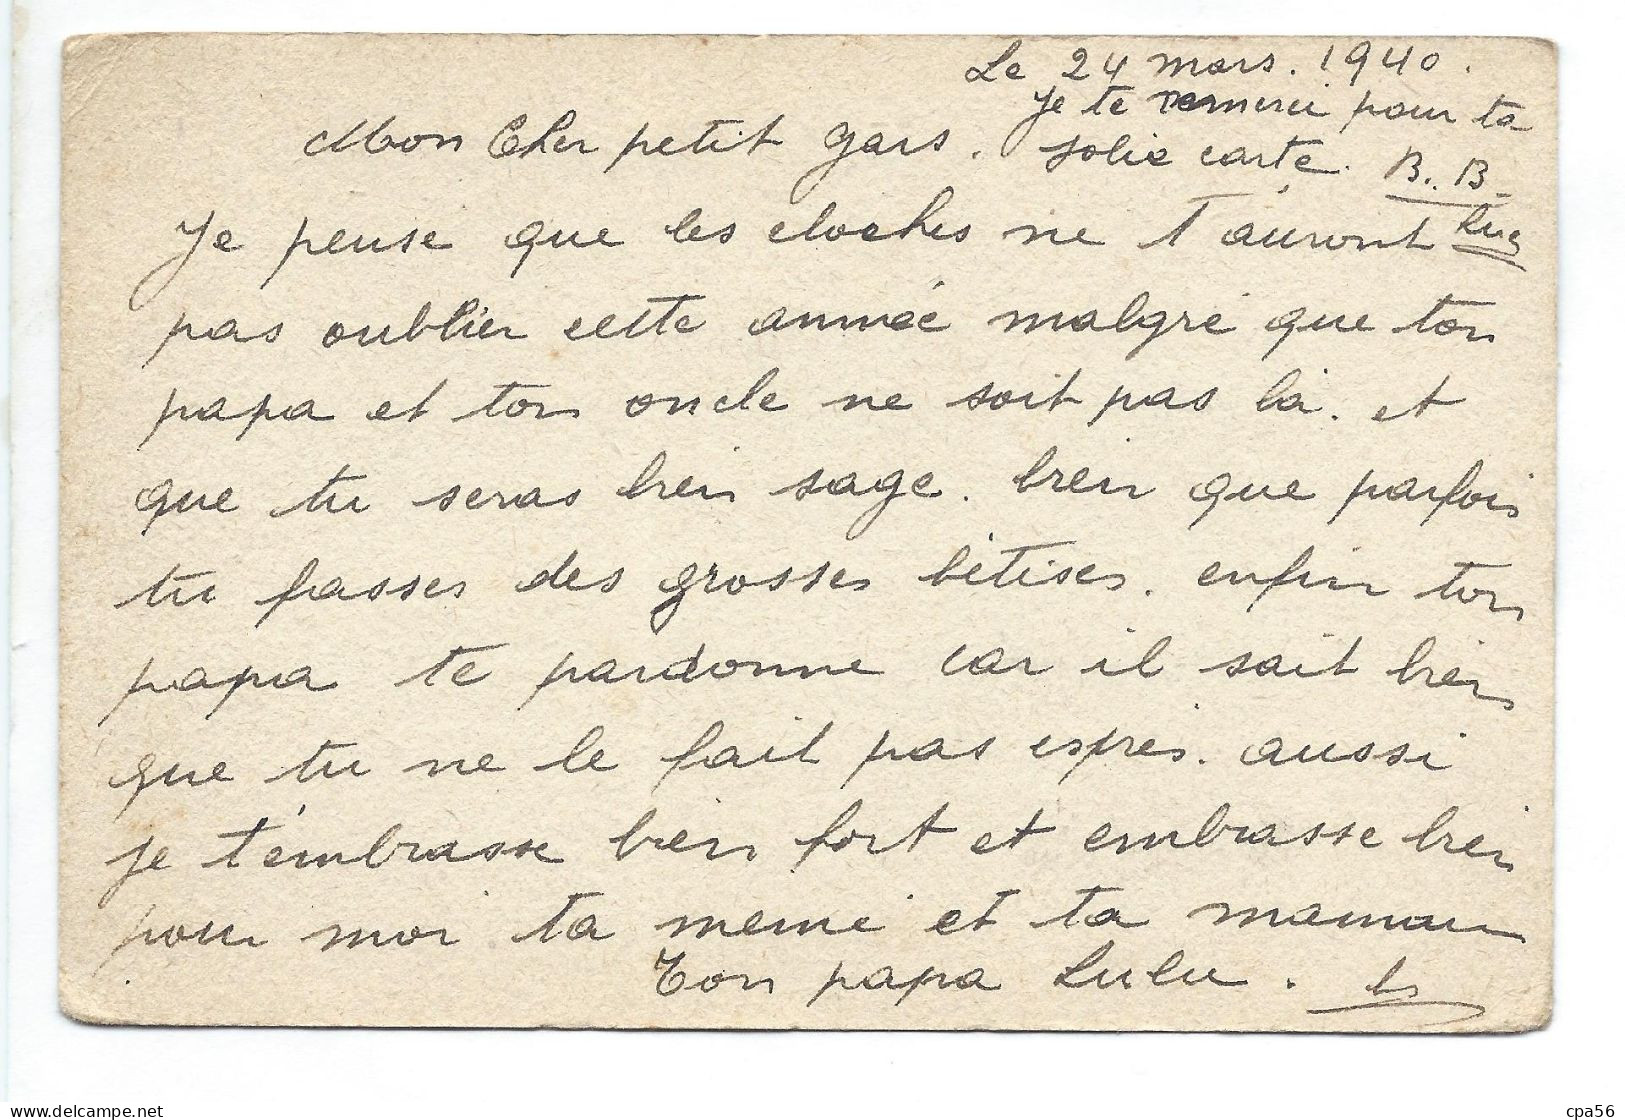 Le 24 mars. 1940.
Je te remerci pour ta
Mon Cher petit gars. jolie carte. B.. B
Je pense que les cloches ne t'auront
pas oublier cette année malgré que ton
papa et ton oncle ne soit pas là. et
que tu seras bien sage. bien que parfois
tu fasses des grosses bêtises. enfin ton
papa te pardonne car il sait bien
que tu ne le fait pas esprès. aussi
je t'embrasse bien fort et embrasse bien
pour moi ta mémé et ta maman
Ton papa Lulu.
delcampe.net
cpa56